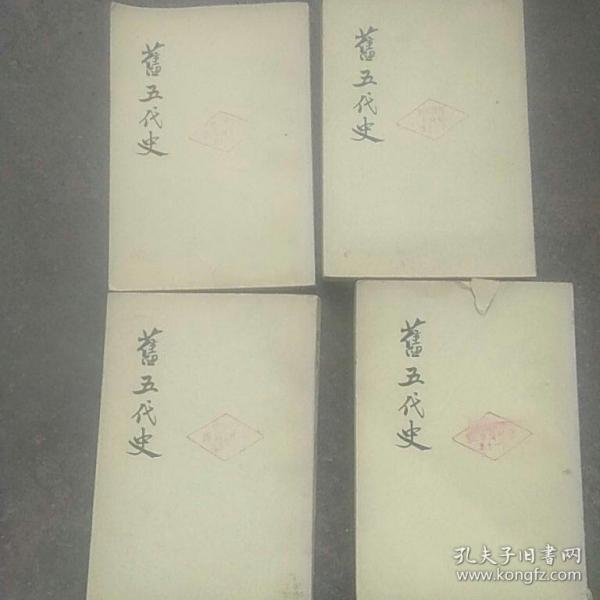 舊五代史
舊五代史
舊五代史
舊五代史
孔夫子旧书网
www.kongfz.com